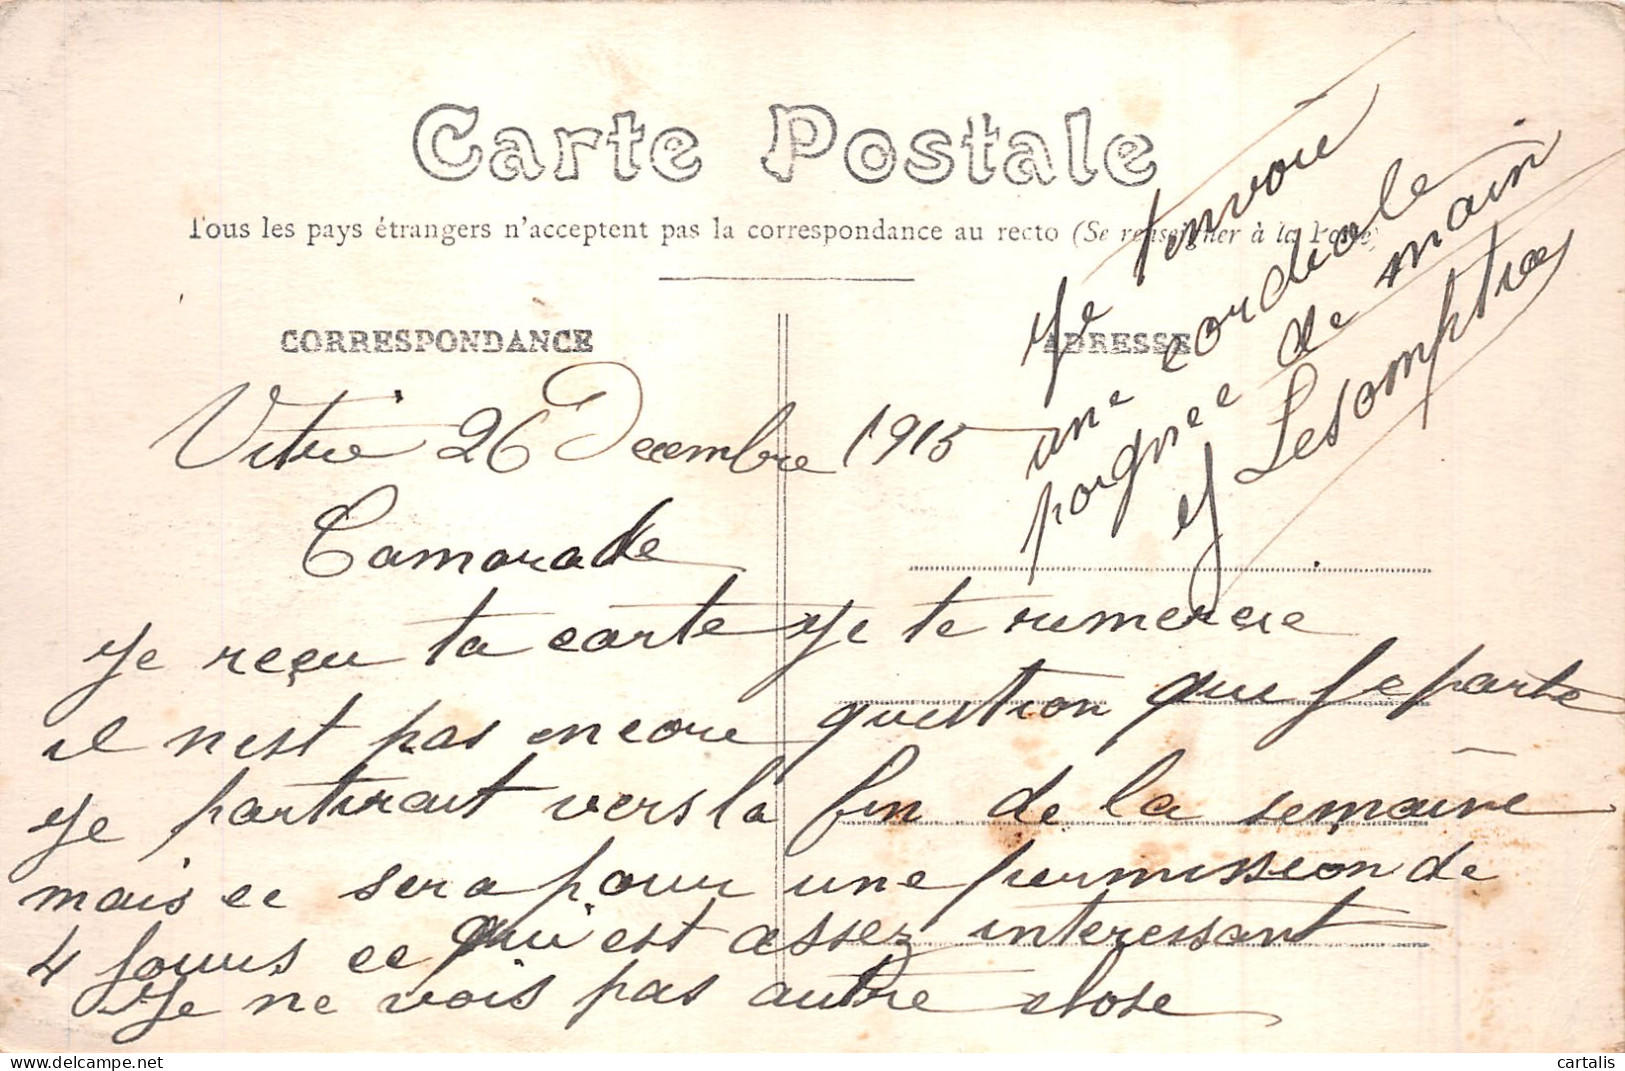 Carte Postale
Tous les pays étrangers n'acceptent pas la correspondance au recto (Se renseigner à la Poste)
CORRESPONDANCE
ADRESSE
Vitré 26 Decembre 1915
Camarade
Je reçu ta carte Je te remercie
il nest pas encore question que Je parte
Je partirait vers la fin de la semaine
mais ce sera pour une permission de
4 Jours ce qui est assez interessant
Je ne vois pas autre chose
Je t'envoie
une cordiale
poignee de main
Lescomptres
delcampe.net
cartalis